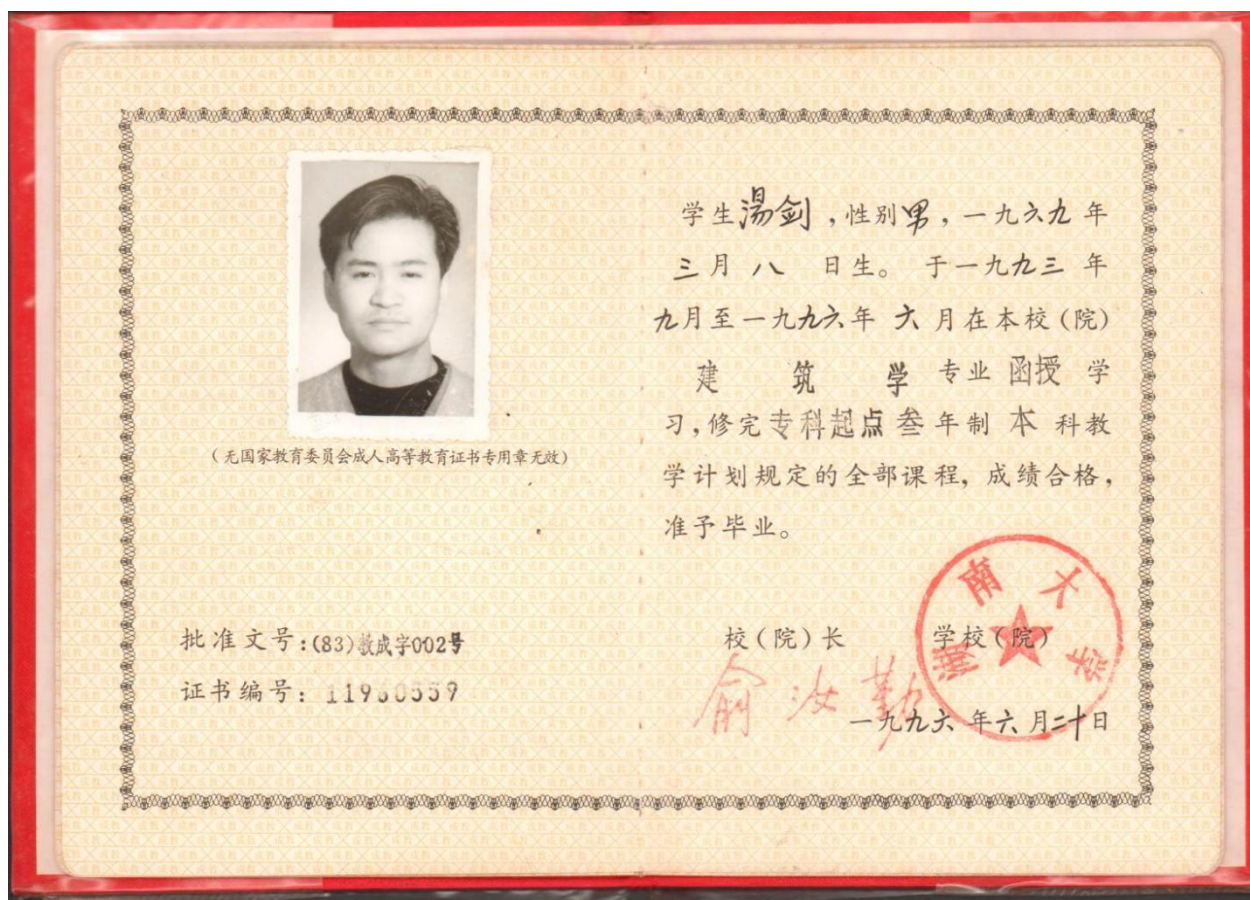 (无国家教育委员会成人高等教育证书专用章无效)
批准文号:(83)教成字002号
证书编号:
学生湯剑,性别男,一九六九年
三月八日生。于一九九三年
九月至一九九六年六月在本校(院)
建筑学专业函授学
习,修完专科起点叁年制本科教
学计划规定的全部课程,成绩合格,
准予毕业。
校(院)长 学校(院)
俞汝勤
湖南大学
一九九六年六月二十日